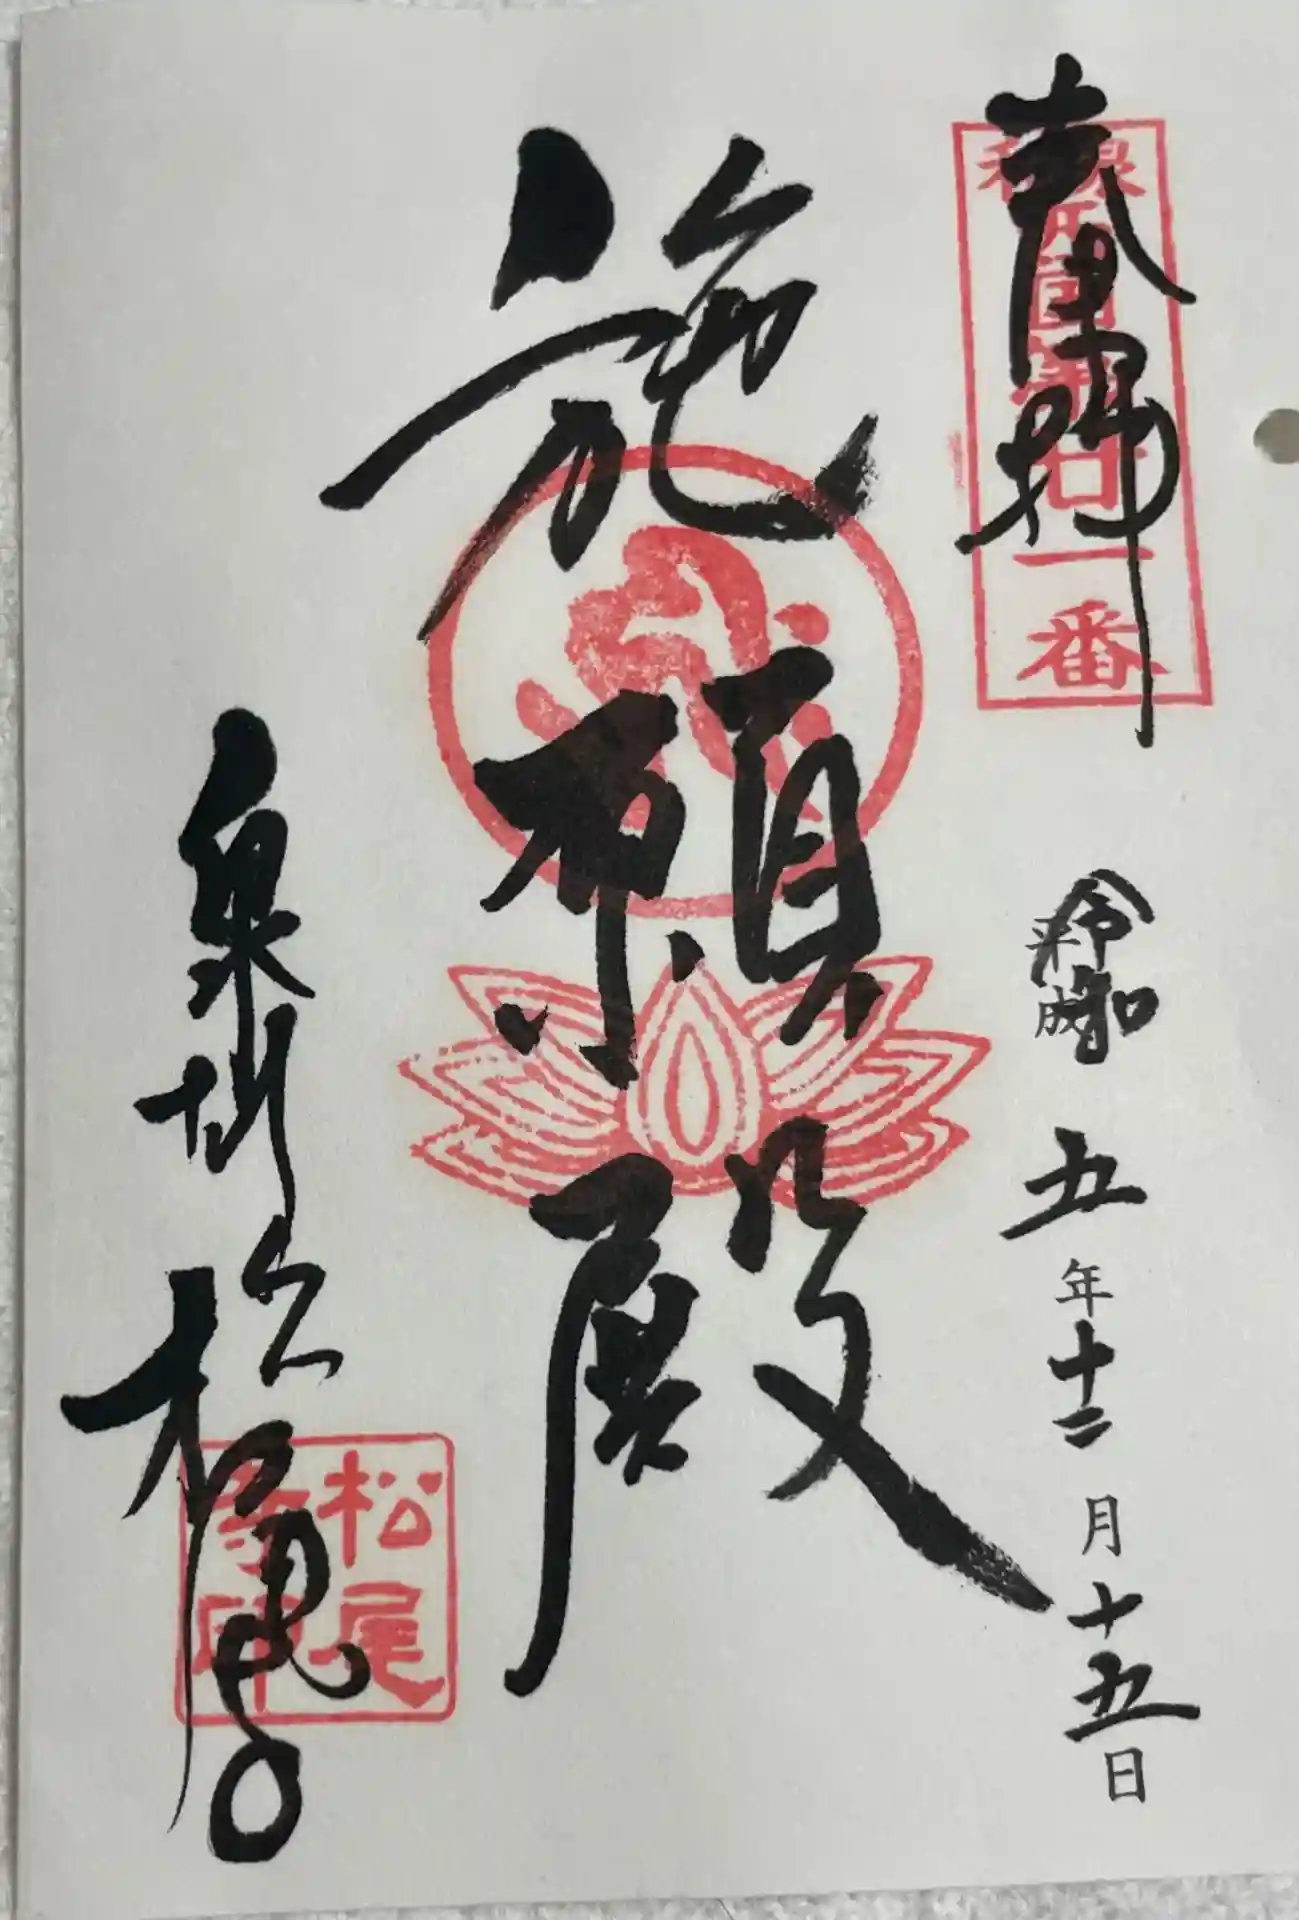 奉拝
和泉西国第廿一番
令和五年十二月十五日
平成
施願殿
泉州松尾寺
松尾寺印